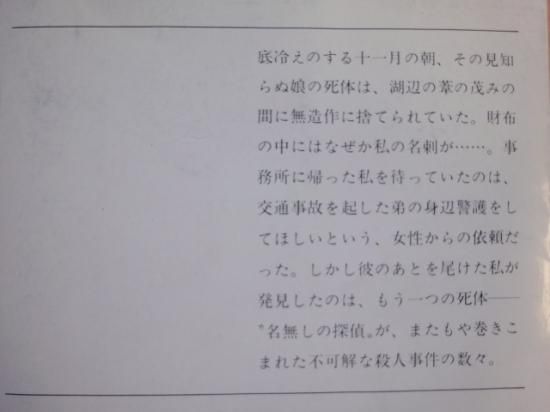 底冷えのする十一月の朝、その見知
らぬ娘の死体は、湖辺の葦の茂みの
間に無造作に捨てられていた。財布
の中にはなぜか私の名刺が……。事
務所に帰った私を待っていたのは、
交通事故を起した弟の身辺警護をし
てほしいという、女性からの依頼だ
った。しかし彼のあとを尾けた私が
発見したのは、もう一つの死体――
〝名無しの探偵〟が、またもや巻きこ
まれた不可解な殺人事件の数々。